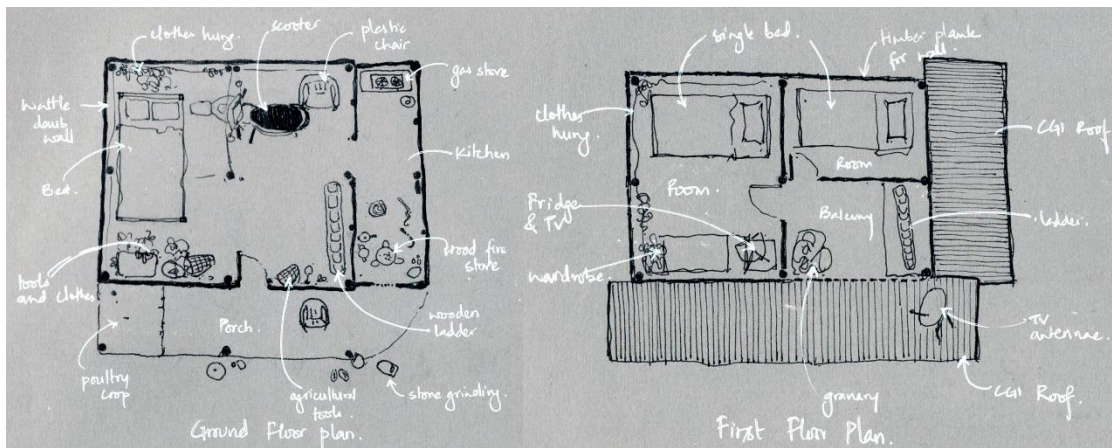 clothes hung.
scooter
plastic
chair
gas stove
wattle
daub
wall
Bed.
Kitchen
tools
and clothes
wood fire
stove
Porch.
wooden
ladder
poultry
crop
agricultural
tools.
stone grinding.
Ground Floor plan.
single bed.
timber plank
for wall.
clothes
hung.
CGI Roof
Room
Room.
Fridge
& TV
Balcony
ladder.
wardrobe.
TV
antennae.
granary
CGI Roof.
First Floor Plan.